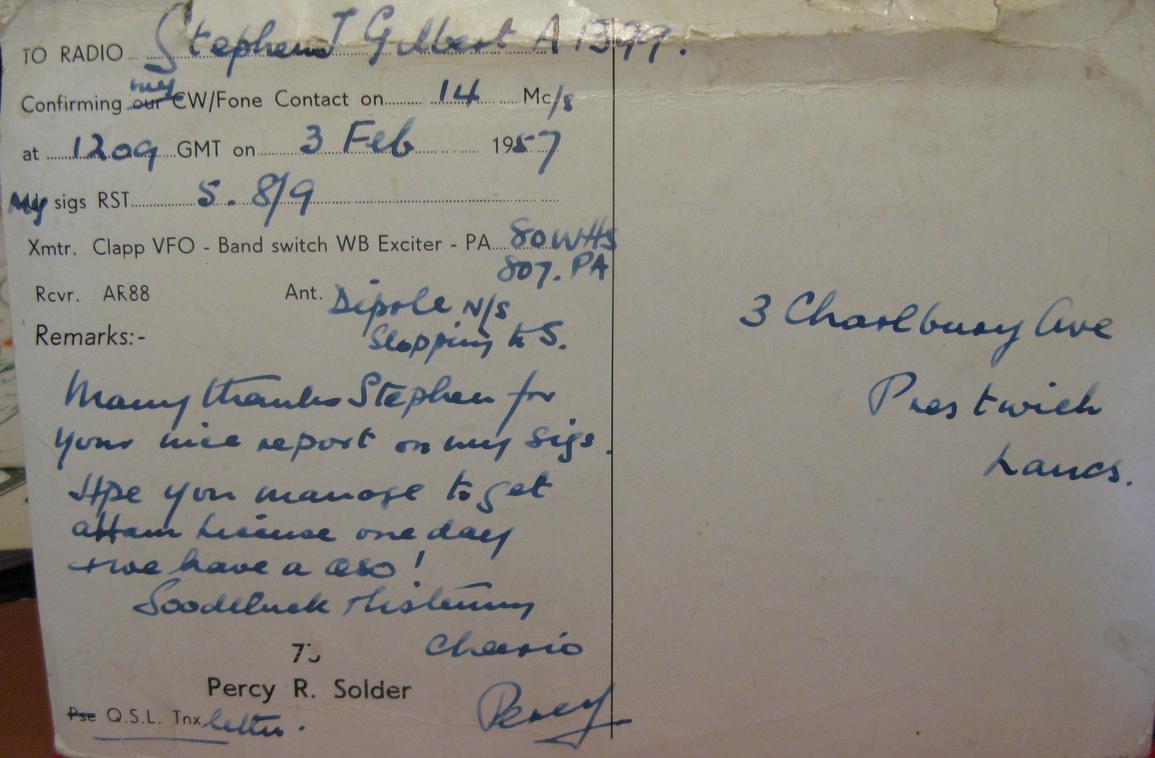 TO RADIO Stephen J Gilbert A 1399.
Confirming our my CW/Fone Contact on 14 Mc/s
at 1209 GMT on 3 Feb 1957
My sigs RST 5. 8/9
Xmtr. Clapp VFO - Band switch WB Exciter - PA 80 Wtts
807. PA
Rcvr. AR88 Ant. Dipole N/S
Slopping to S.
Remarks:-
Many thanks Stephen for
your nice report on my sigs.
Hpe you manage to get
a Ham License one day
+ we have a QSO!
Goodluck + listening
Cheerio
73
Percy R. Solder
Percy
Pse Q.S.L. Tnx letter.
3 Charlbury Ave
Prestwich
Lancs.